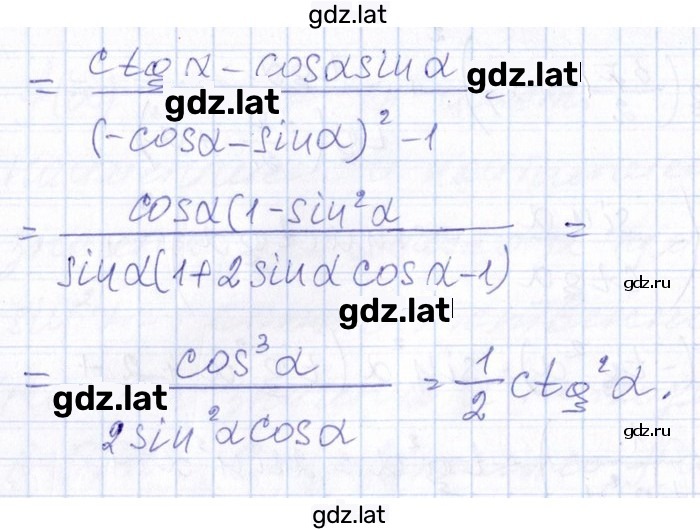 gdz.lat
= (ctg α - cos α sin α) / ((-cos α - sin α)² - 1) =
gdz.lat gdz.lat
= (cos α (1 - sin² α) / (sin α (1 + 2 sin α cos α - 1)) =
gdz.ru
gdz.lat
= cos³ α / (2 sin² α cos α) = 1/2 ctg² α.
gdz.lat
gdz.ru
gdz.lat